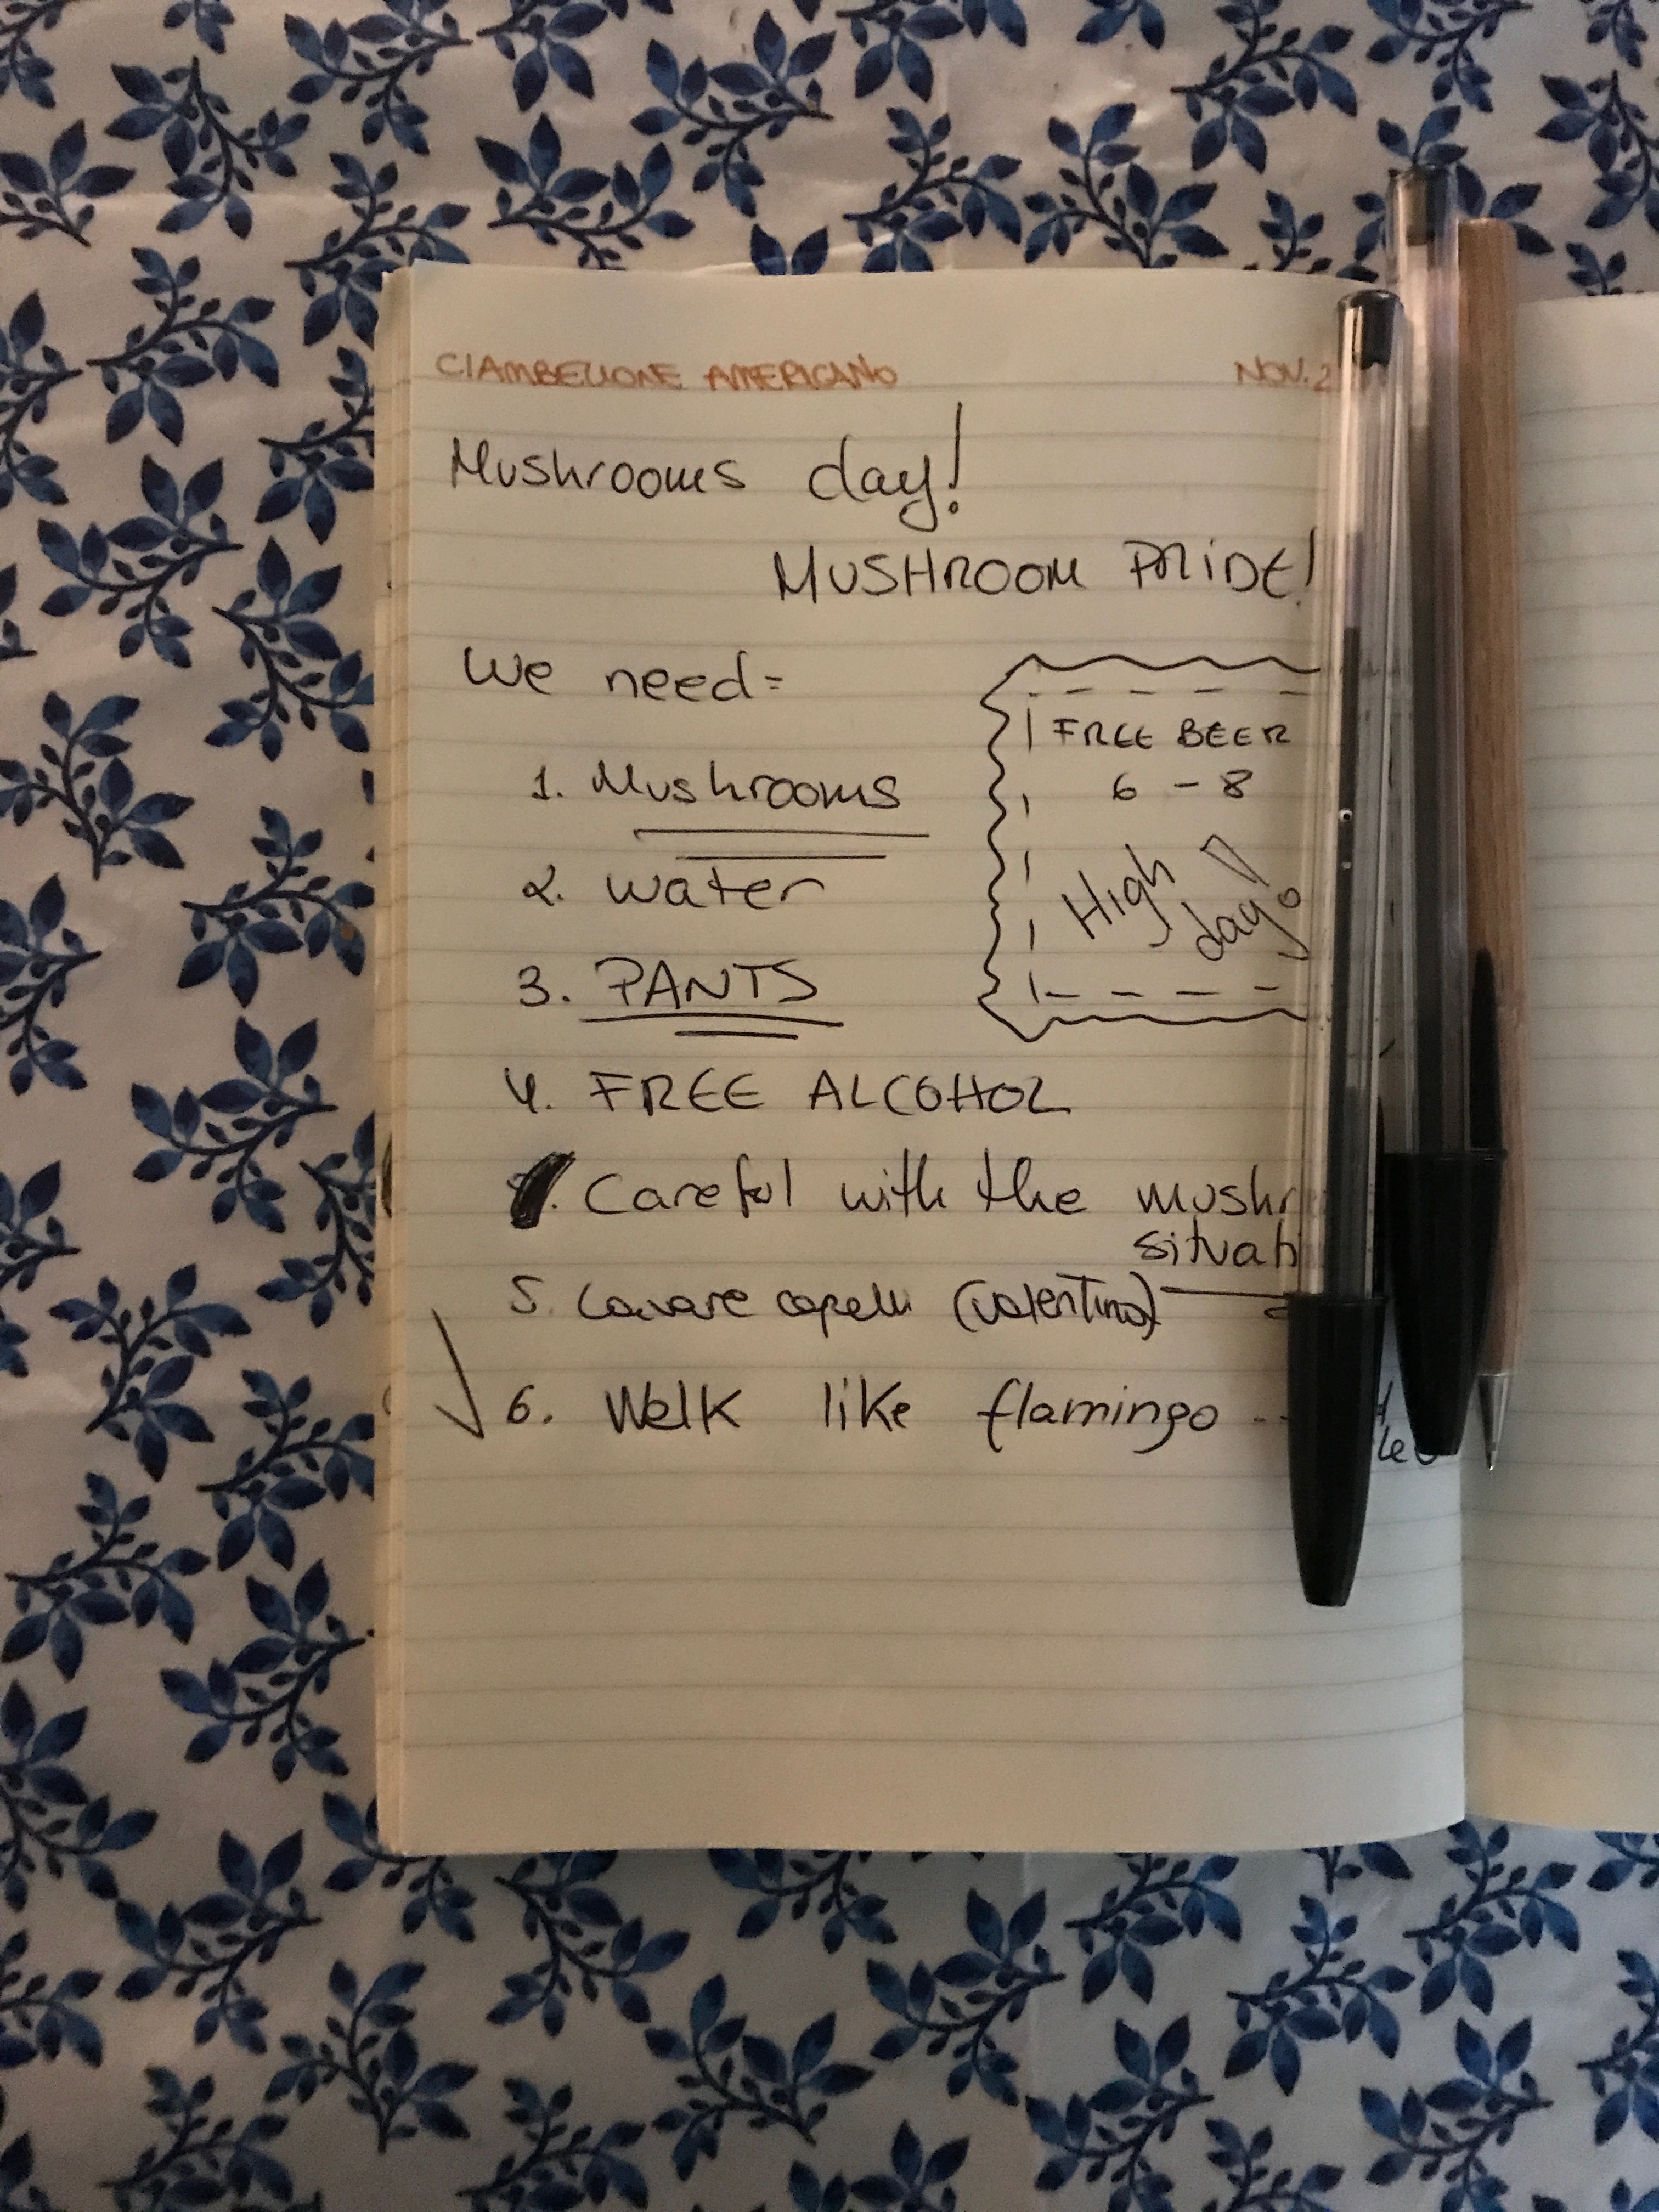 CIAMBELLONE AMERICANO NOV. 2
Mushrooms day!
MUSHROOM PRIDE!
We need=
FREE BEER
6 - 8
High day!
1. Mushrooms
2. water
3. PANTS
4. FREE ALCOHOL
. Careful with the mushr
situati
5. Lavare capelli (Valentina)
6. Walk like flamingo